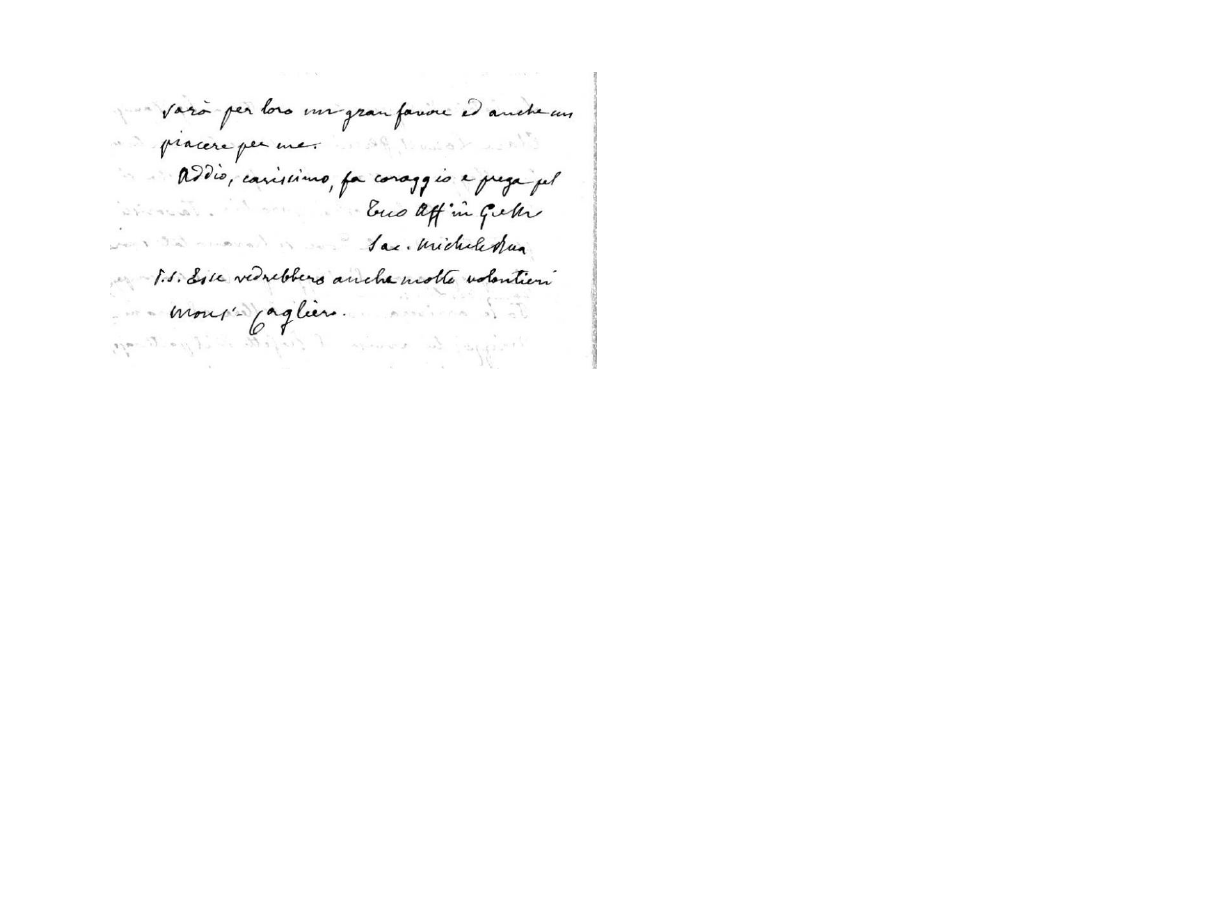 sarà per loro un gran favore ed anche un
piacere per me.
Addio, carissimo, fa coraggio e prega pel
Tuo Aff in G e M
Sac. Michele Rua
P.S. Esse vedrebbero anche molto volontieri
Monsr Cagliero.